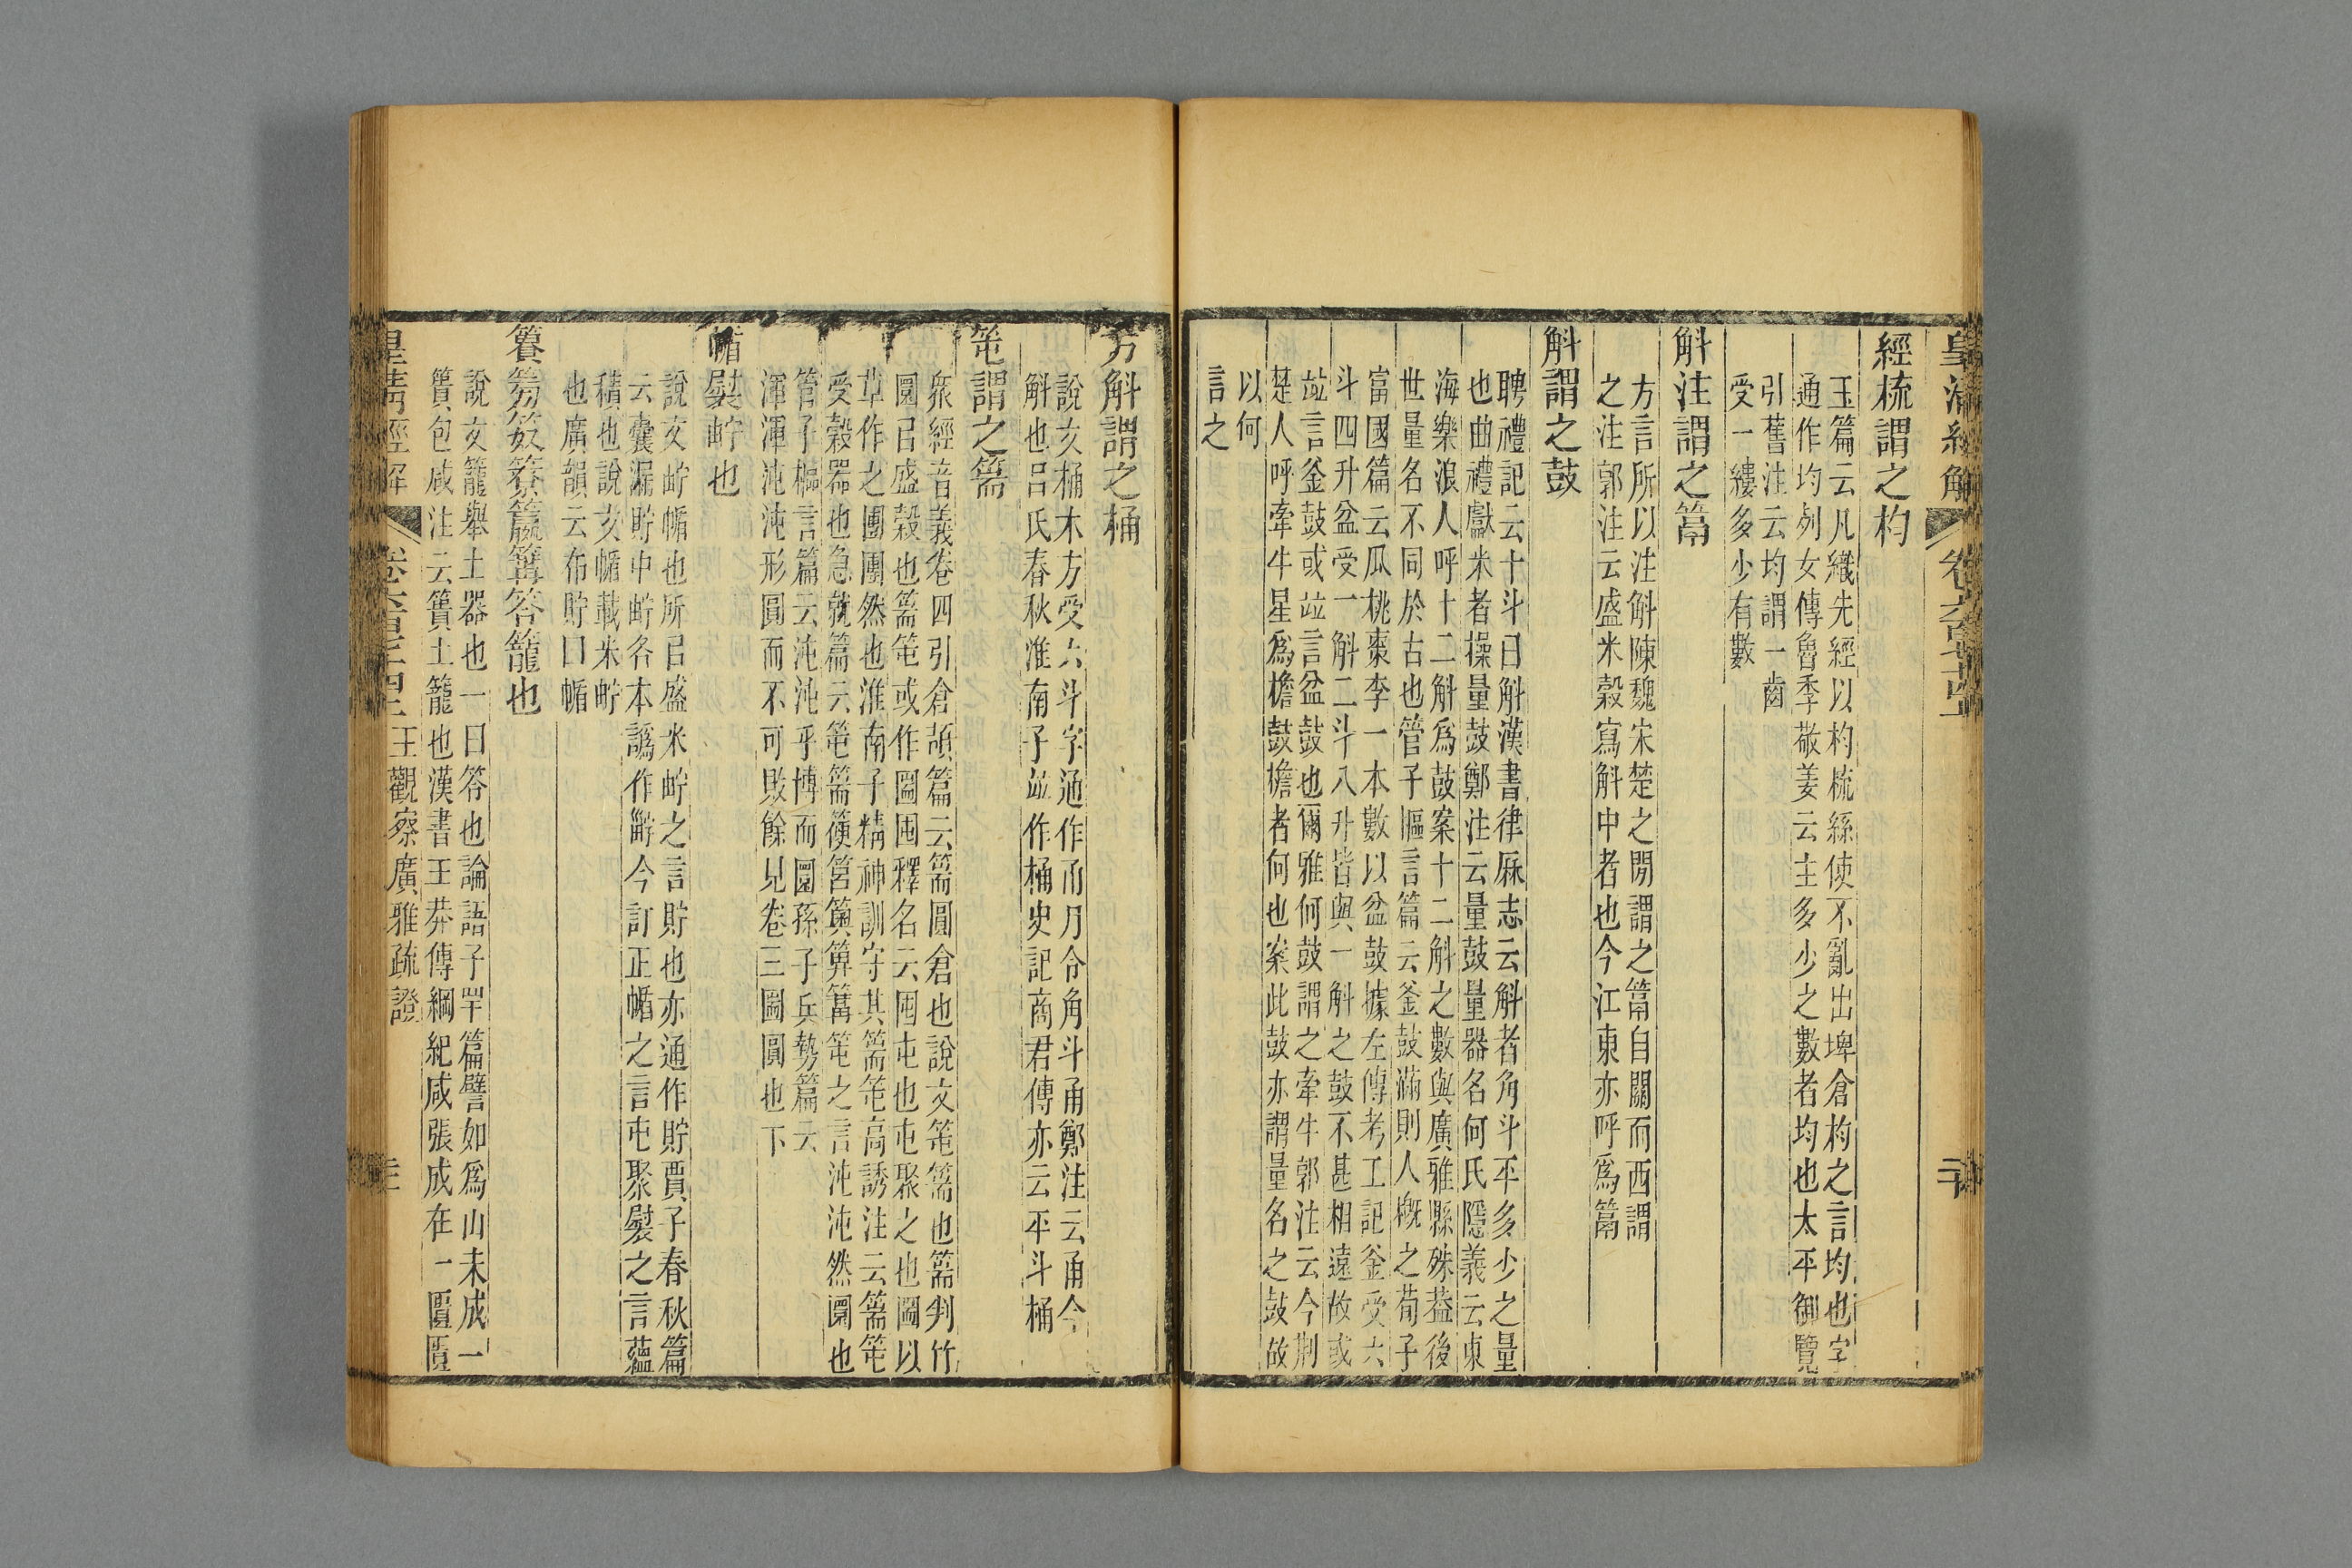 皇清經解
經梳謂之枃
玉篇云凡織先經以枃梳絲使不亂出埤倉枃之言均也字
通作均列女傳魯季敬姜云主多少之數者均也太平御覽
引舊注云均謂一齒
受一縷多少有數
斛注謂之䈰
方言所以注斛陳魏宋楚之閒謂之䈰自關而西謂
之注郭注云盛米穀寫斛中者也今江東亦呼爲䈰
斛謂之鼓
聘禮記云十斗曰斛漢書律厤志云斛者角斗平多少之量
也曲禮獻米者操量鼓鄭注云量鼓量器名何氏隱義云東
海樂浪人呼十二斛爲鼓案十二斛之數與廣雅縣殊葢後
世量名不同於古也管子樞言篇云釜鼓滿則人概之荀子
富國篇云瓜桃棗李一本數以盆鼓據左傳考工記釜受六
斗四升盆受一斛二斗八升皆與一斛之鼓不甚相遠故或
竝言釜鼓或竝言盆鼓也爾雅何鼓謂之牽牛郭注云今荆
楚人呼牽牛星爲檐鼓檐者何也案此鼓亦謂量名之鼓故
以何
言之
方斛謂之桶
說文桶木方受六斗字通作甬月令角斗甬鄭注云甬今
斛也呂氏春秋淮南子竝作桶史記商君傳亦云平斗桶
笔謂之篅
衆經音義卷四引倉頡篇云篅圓倉也說文笔篅也篅判竹
圜㠯盛穀也篅笔或作圌囤釋名云囤屯也屯聚之也圌以
草作之團團然也淮南子精神訓守其篅笔高誘注云篅笔
受穀器也急就篇云笔篅篋筥䉛箅篝笔之言沌沌然圜也
管子樞言篇云沌沌乎博而圜孫子兵勢篇云
渾渾沌沌形圓而不可敗餘見卷三圌圓也下
㡒褽㡀也
說文㡀㡒也所㠯盛米㡀之言貯也亦通作貯賈子春秋篇
云囊漏貯中㡀各本譌作㡀今訂正㡒之言屯聚褽之言蘊
積也說文㡒載米㡀
也廣韻云布貯曰㡒
籫䈊笯䉛籯篝笿籠也
說文籠舉土器也一曰笿也論語子罕篇譬如爲山未成一
簣包咸注云簣土籠也漢書王莽傳綱紀咸張成在一匱匱
皇清經解 王觀察廣雅疏證